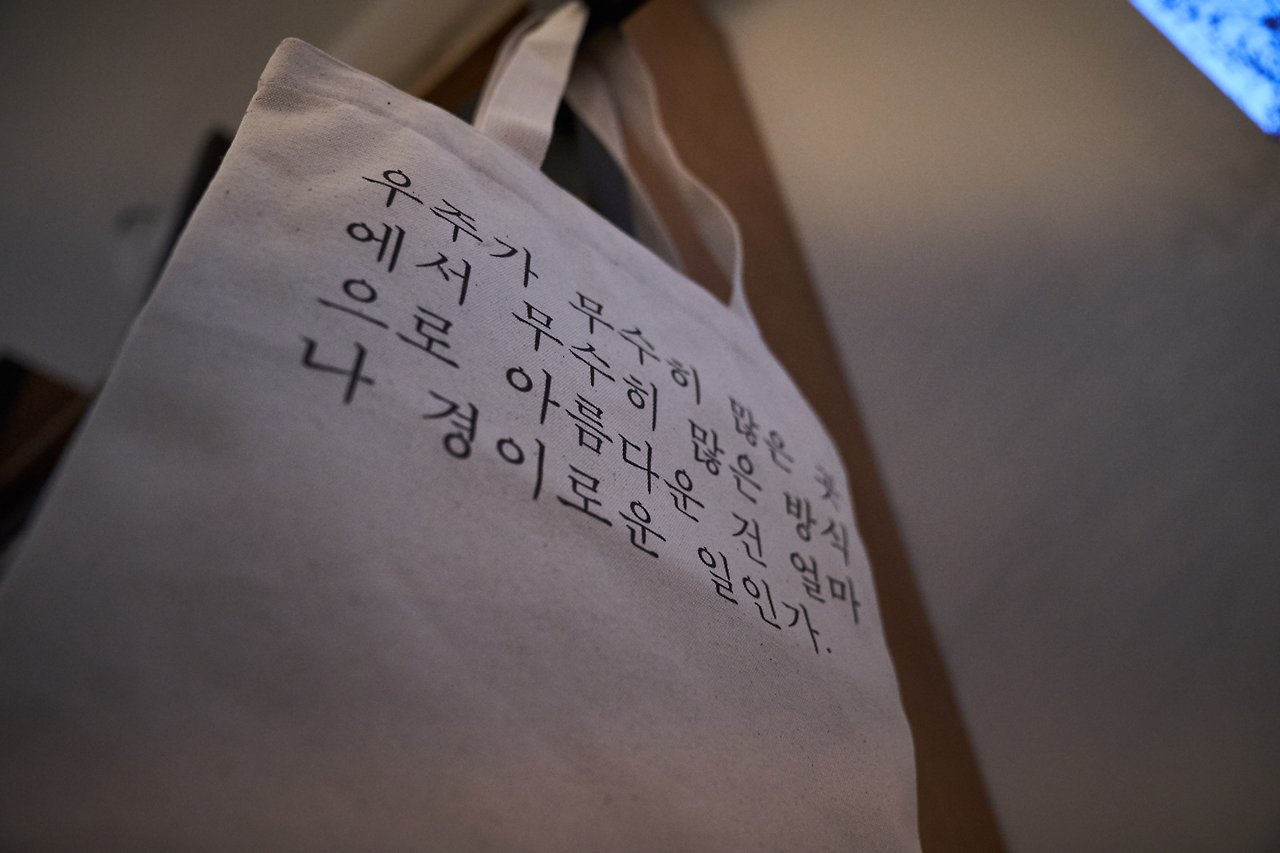 우주가 무수히 많은 곳
에서 무수히 많은 방식
으로 아름다운 건 얼마
나 경이로운 일인가.